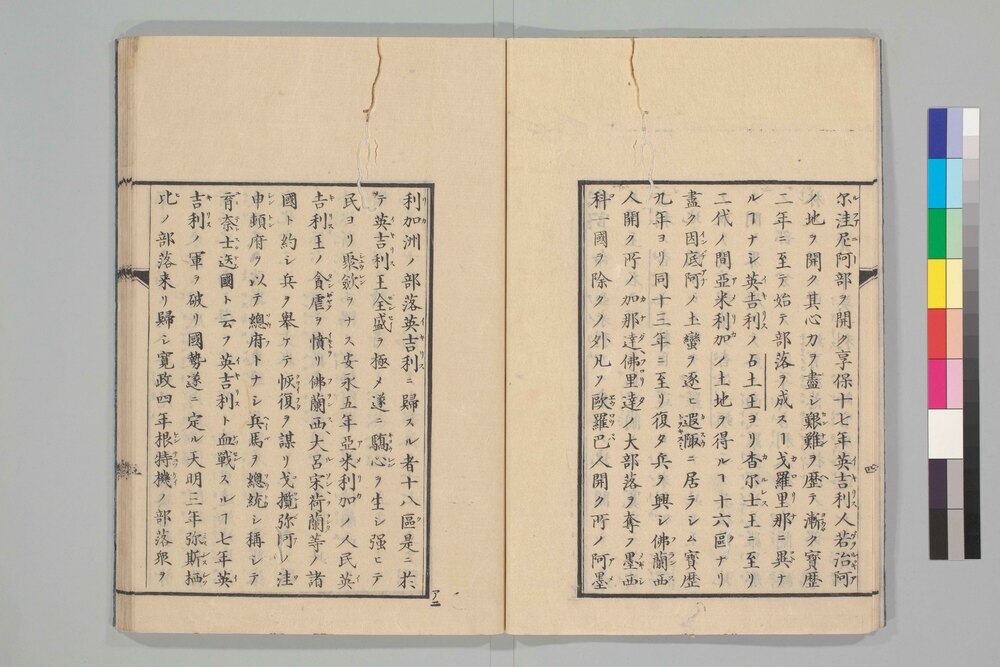 尓洼尼阿部ヲ開ク享保十七年英吉利人若治阿
ノ地ヲ開ク其心力ヲ盡シ艱難ヲ歴テ漸ク寳歴
二年ニ至テ始テ部落ヲ成スヿ戈羅里那ニ異ナ
ルヿナシ英吉利ノ石土王ヨリ査尓士王ニ至リ
二代ノ間亞米利加ノ土地ヲ得ルヿ十六區ナリ
盡ク因底阿ノ土蠻ヲ逐ヒ遐陬ニ居ラシム寳歴
九年ヨリ同十三年ニ至リ復タ兵ヲ興シ佛蘭西
人開ク所ノ加那達佛里達ノ大部落ヲ奪フ墨西
科一國ヲ除クノ外凡ソ歐羅巴人開ク所ノ阿墨
利加洲ノ部落英吉利ニ歸スル者十八區是ニ於
テ英吉利王全盛ヲ極メ遂ニ驕心ヲ生シ强ヒテ
民ヨリ聚斂ヲナス安永五年亞米利加ノ人民英
吉利王ノ貪虐ヲ憤リ佛蘭西大呂宋荷蘭等ノ諸
國ト約シ兵ヲ舉ケテ恢復ヲ謀リ戈攬弥阿ノ洼
申頓府ヲ以テ總府トナシ兵馬ヲ總統シ稱シテ
育奈士迭國ト云フ英吉利ト血戰スルヿ七年英
吉利ノ軍ヲ破リ國勢遂ニ定ル天明三年弥斯栖
比ノ部落来リ歸シ寛政四年根特機ノ部落衆ヲ